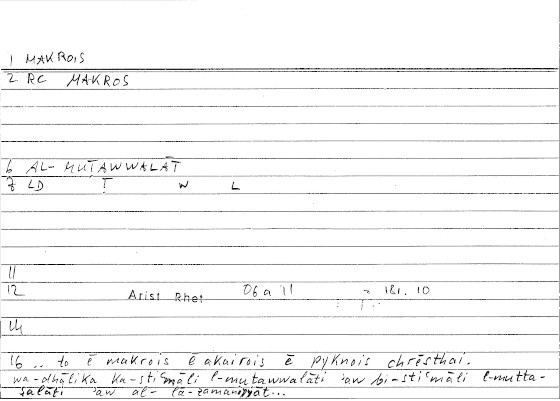 1 MAKROIS
2 RC MAKROS
6 AL-MUṬAWWALĀT
7 LD Ṭ W L
11
12 Arist Rhet 06 a 11 = 181. 10
14
16 .. to ē makrois ē akairois ē pyknois chrēsthai.
wa-dhālika ka-stiʿmāli l-mutawwalāti ʾaw bi-stiʿmāli l-mutta-
ṣalāti ʾaw al-lā-zamaniyyāt...